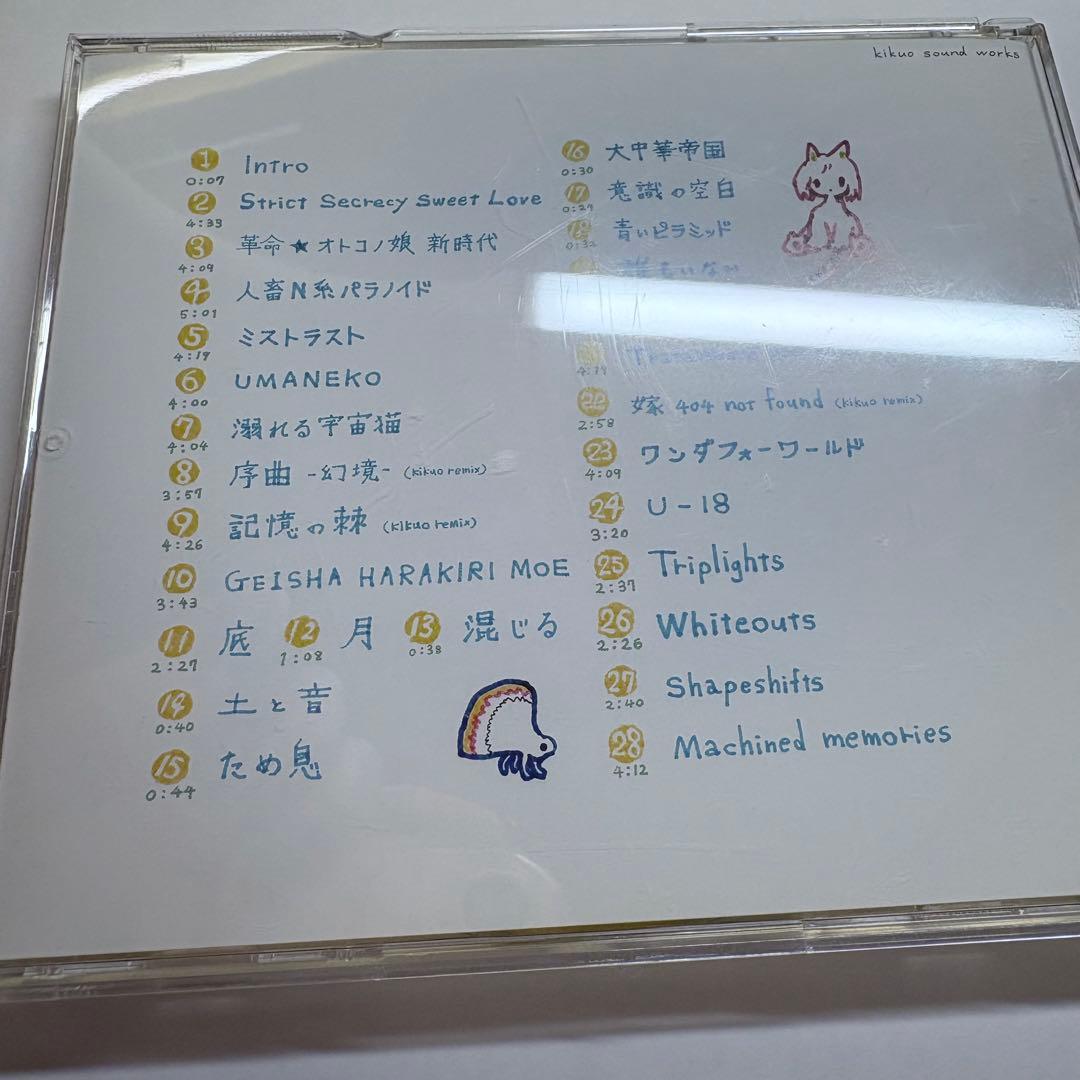 kikuo sound works
1 Intro
0:07
2 Strict Secrecy Sweet Love
4:33
3 革命★オトコノ娘 新時代
4:09
4 人畜N系パラノイド
5:01
5 ミストラスト
4:19
6 UMANEKO
4:00
7 溺れる宇宙猫
4:04
8 序曲 -幻境- (kikuo remix)
3:57
9 記憶の棘 (kikuo remix)
4:26
10 GEISHA HARAKIRI MOE
3:43
11 底 12 月 13 混じる
2:27 1:08 0:38
14 土と音
0:40
15 ため息
0:44
16 大中華帝国
0:30
17 意識の空白
0:29
18 青いピラミッド
0:32
誰もいない
4:19
22 嫁 404 not found (kikuo remix)
2:58
23 ワンダフォーワールド
4:09
24 U-18
3:20
25 Triplights
2:37
26 Whiteouts
2:26
27 Shapeshifts
2:40
28 Machined memories
4:12